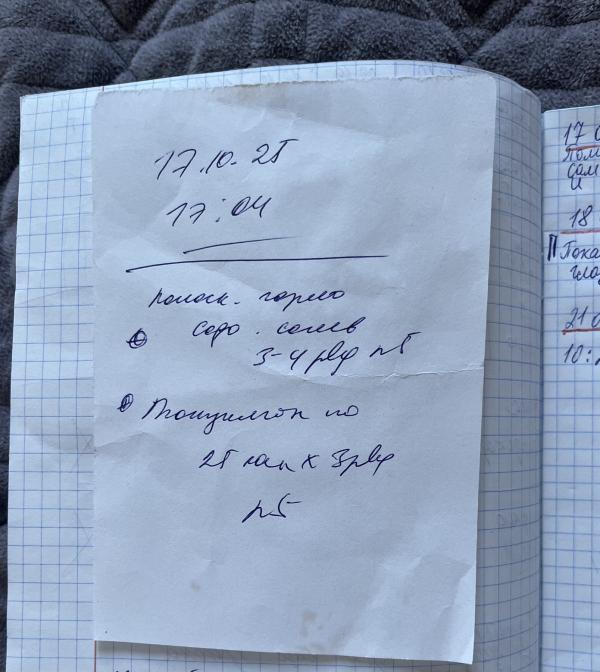 17.10.25
17:04
Полоск. горло
Содо. солев
3-4 р/д №5
Тонзилгон по
25 кап х 3 р/д
№5
17 0
Пом
сам
и
18
Пока
гла
21 0
10: